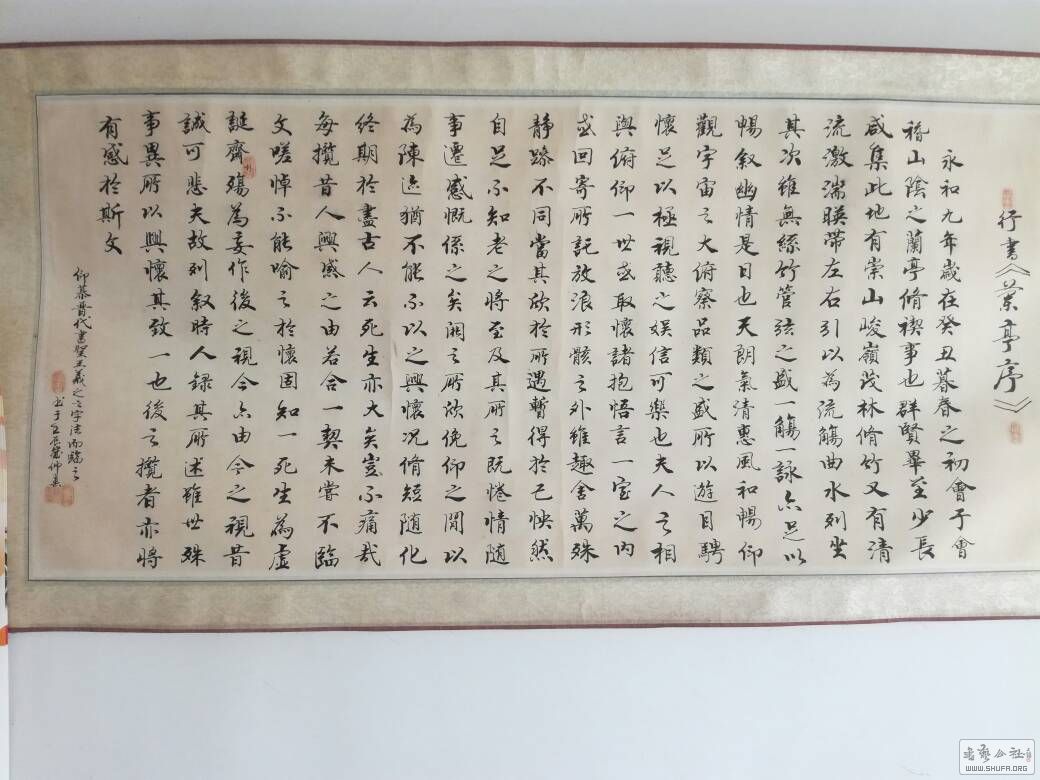 行書《蘭亭序》
永和九年歲在癸丑暮春之初會于會
稽山陰之蘭亭脩禊事也群賢畢至少長
咸集此地有崇山峻嶺茂林脩竹又有清
流激湍暎帶左右引以為流觴曲水列坐
其次雖無絲竹管弦之盛一觴一詠亦足以
暢叙幽情是日也天朗氣清惠風和暢仰
觀宇宙之大俯察品類之盛所以遊目騁
懷足以極視聽之娛信可樂也夫人之相
與俯仰一世或取懷諸抱悟言一室之內
或回寄所記放浪形骸之外雖趣舍萬殊
靜躁不同當其欣於所遇暫得於己怏然
自足不知老之將至及其所之既惓情隨
事遷感慨係之矣闗之所欣俛仰之閒以
為陳迹猶不能不以之興懷况脩短随化
終期於盡古人云死生亦大矣豈不痛哉
每攬昔人興感之由若合一契未嘗不臨
文嗟悼不能喻之於懷固知一死生為虛
誕齊殤為妄作後之視今亦由今之視昔
誠可悲夫故列叙時人録其所述雖世殊
事異所以興懷其致一也後之攬者亦將
有感於斯文
仰慕晋代書聖王羲之之字法而臨之
书于壬辰
書藝公社
WWW.SHUFA.ORG